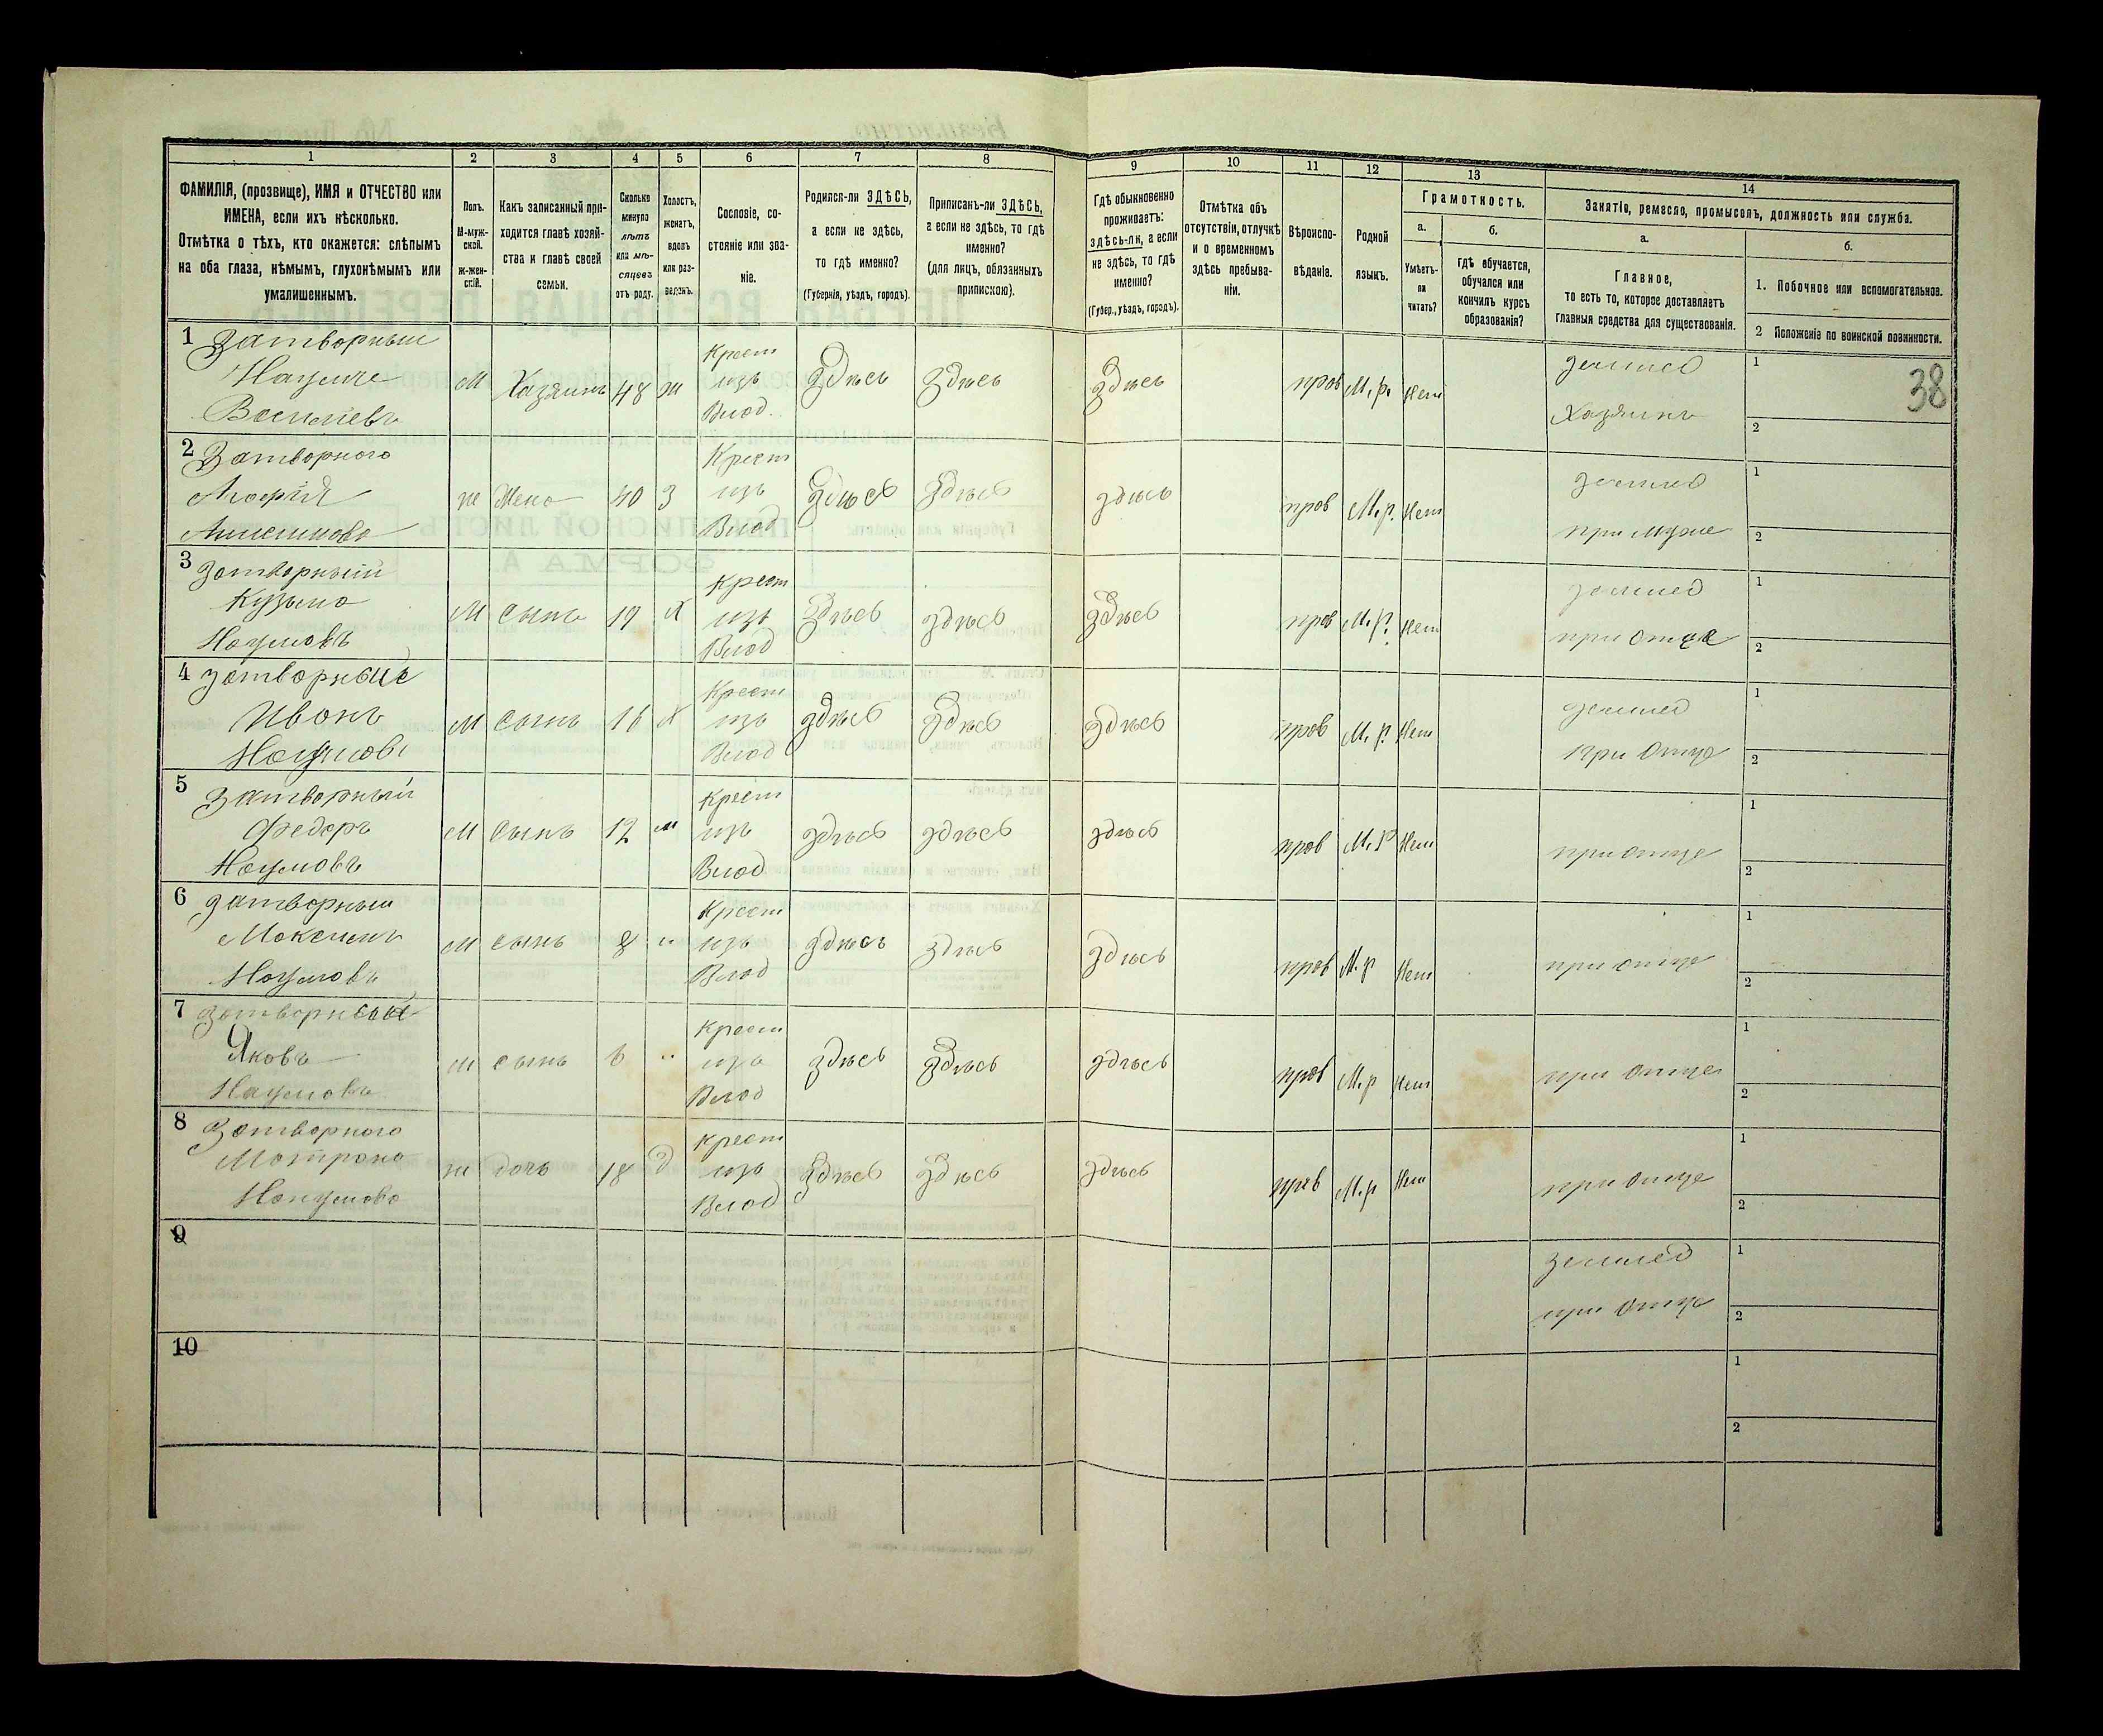 1 2 3 4 5 6 7 8 9 10 11 12 13 14
ФАМИЛІЯ, (прозвище), ИМЯ и ОТЧЕСТВО или
ИМЕНА, если ихъ нѣсколько.
Отмѣтка о тѣхъ, кто окажется: слѣпымъ
на оба глаза, нѣмымъ, глухонѣмымъ или
умалишеннымъ.
Полъ.
М-муж-
ской.
ж-жен-
скій.
Какъ записанный при-
ходится главѣ хозяй-
ства и главѣ своей
семьи.
Сколько
минуло
лѣтъ
или мѣ-
сяцевъ
отъ роду.
Холостъ,
женатъ,
вдовъ
или раз-
веденъ.
Сословіе, со-
стояніе или зва-
ніе.
Родился-ли ЗДѢСЬ,
а если не здѣсь,
то гдѣ именно?
(Губернія, уѣздъ, городъ).
Приписанъ-ли ЗДѢСЬ,
а если не здѣсь, то гдѣ
именно?
(для лицъ, обязанныхъ
припискою).
Гдѣ обыкновенно
проживаетъ:
здѣсь-ли, а если
не здѣсь, то гдѣ
именно?
(Губер., уѣздъ, городъ).
Отмѣтка объ
отсутствіи, отлучкѣ
и о временномъ
здѣсь пребыва-
ніи.
Вѣроиспо-
вѣданіе.
Родной
языкъ.
Грамотность.
а.
Умѣетъ-
ли
читать?
б.
гдѣ обучается,
обучался или
кончилъ курсъ
образованія?
Занятіе, ремесло, промыселъ, должность или служба.
а.
Главное,
то есть то, которое доставляетъ
главныя средства для существованія.
б.
1. Побочное или вспомогательное.
2 Положеніе по воинской повинности.
38
1 Затворный Крест землед 1
М Хазяинъ 48 ж изъ здѣсь здѣсь здѣсь прав М.р. нет
Васильевъ Влод. Хазяинъ 2
2 Затворного Крест землед 1
ж Жена 40 З изъ здѣсь здѣсь здѣсь прав М.р. нет
Влод при муже 2
3 Затворный Крест землед 1
Кузьма М сынъ 19 Х изъ здѣсь здѣсь здѣсь прав М.р. нет
Наумовъ Влод при отце 2
4 Затворный Крест землед 1
Иванъ М сынъ 16 Х изъ здѣсь здѣсь здѣсь прав М.р. нет
Наумовъ Влод при отце 2
5 Затворный Крест 1
Федоръ М сынъ 12 " изъ здѣсь здѣсь здѣсь прав М.р нет
Наумовъ Влод при отце 2
6 Затворный Крест 1
Максимъ М сынъ 8 " изъ здѣсь здѣсь здѣсь прав М.р нет при отце
Наумовъ Влод 2
7 Затворный Крест 1
Яковъ М сынъ 6 " изъ здѣсь здѣсь здѣсь прав М.р нет при отце
Наумовъ Влод 2
8 Затворного Крест 1
Мотрона ж дочь 18 д изъ здѣсь здѣсь здѣсь прав М.р нет при отце
Наумова Влод 2
9 землед 1
при отце 2
10 1
2